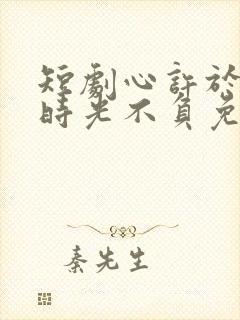 短劇心許於
時光不負免
秦先生